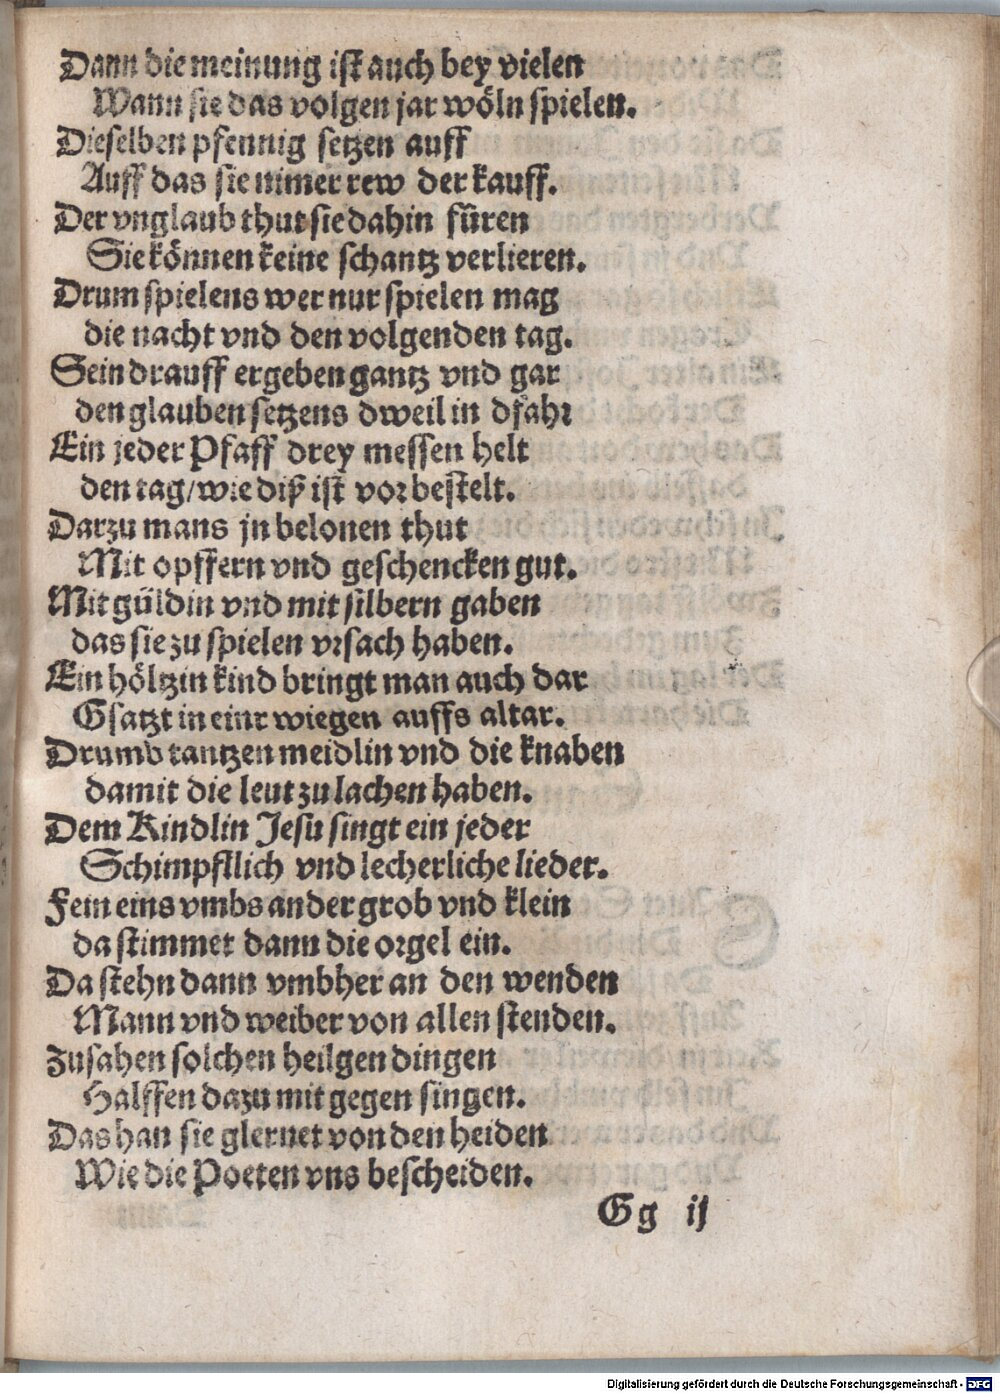 Dann die meinung ist auch bey vielen
Wann sie das volgen jar wöln spielen.
Dieselben pfennig setzen auff
Auff das sie nimer rew der kauff.
Der vnglaub thut sie dahin füren
Sie können keine schantz verlieren.
Drum spielens wer nur spielen mag
die nacht vnd den volgenden tag.
Sein drauff ergeben gantz vnd gar
den glauben setzens dweil in dfahr
Ein jeder Pfaff drey messen helt
den tag/wie diß ist vor bestelt.
Darzu mans jn belonen thut
Mit opffern vnd geschencken gut.
Mit güldin vnd mit silbern gaben
das sie zu spielen vrsach haben.
Ein höltzin kind bringt man auch dar
Gsatzt in einr wiegen auffs altar.
Drumb tantzen meidlin vnd die knaben
damit die leut zu lachen haben.
Dem Kindlin Jesu singt ein jeder
Schimpfllich vnd lecherliche lieder.
Fein eins vmbs ander grob vnd klein
da stimmet dann die orgel ein.
Da stehn dann vmbher an den wenden
Mann vnd weiber von allen stenden.
Zusahen solchen heilgen dingen
Halffen dazu mit gegen singen.
Das han sie glernet von den heiden
Wie die Poeten vns bescheiden.
Gg ij
Digitalisierung gefördert durch die Deutsche Forschungsgemeinschaft - DFG